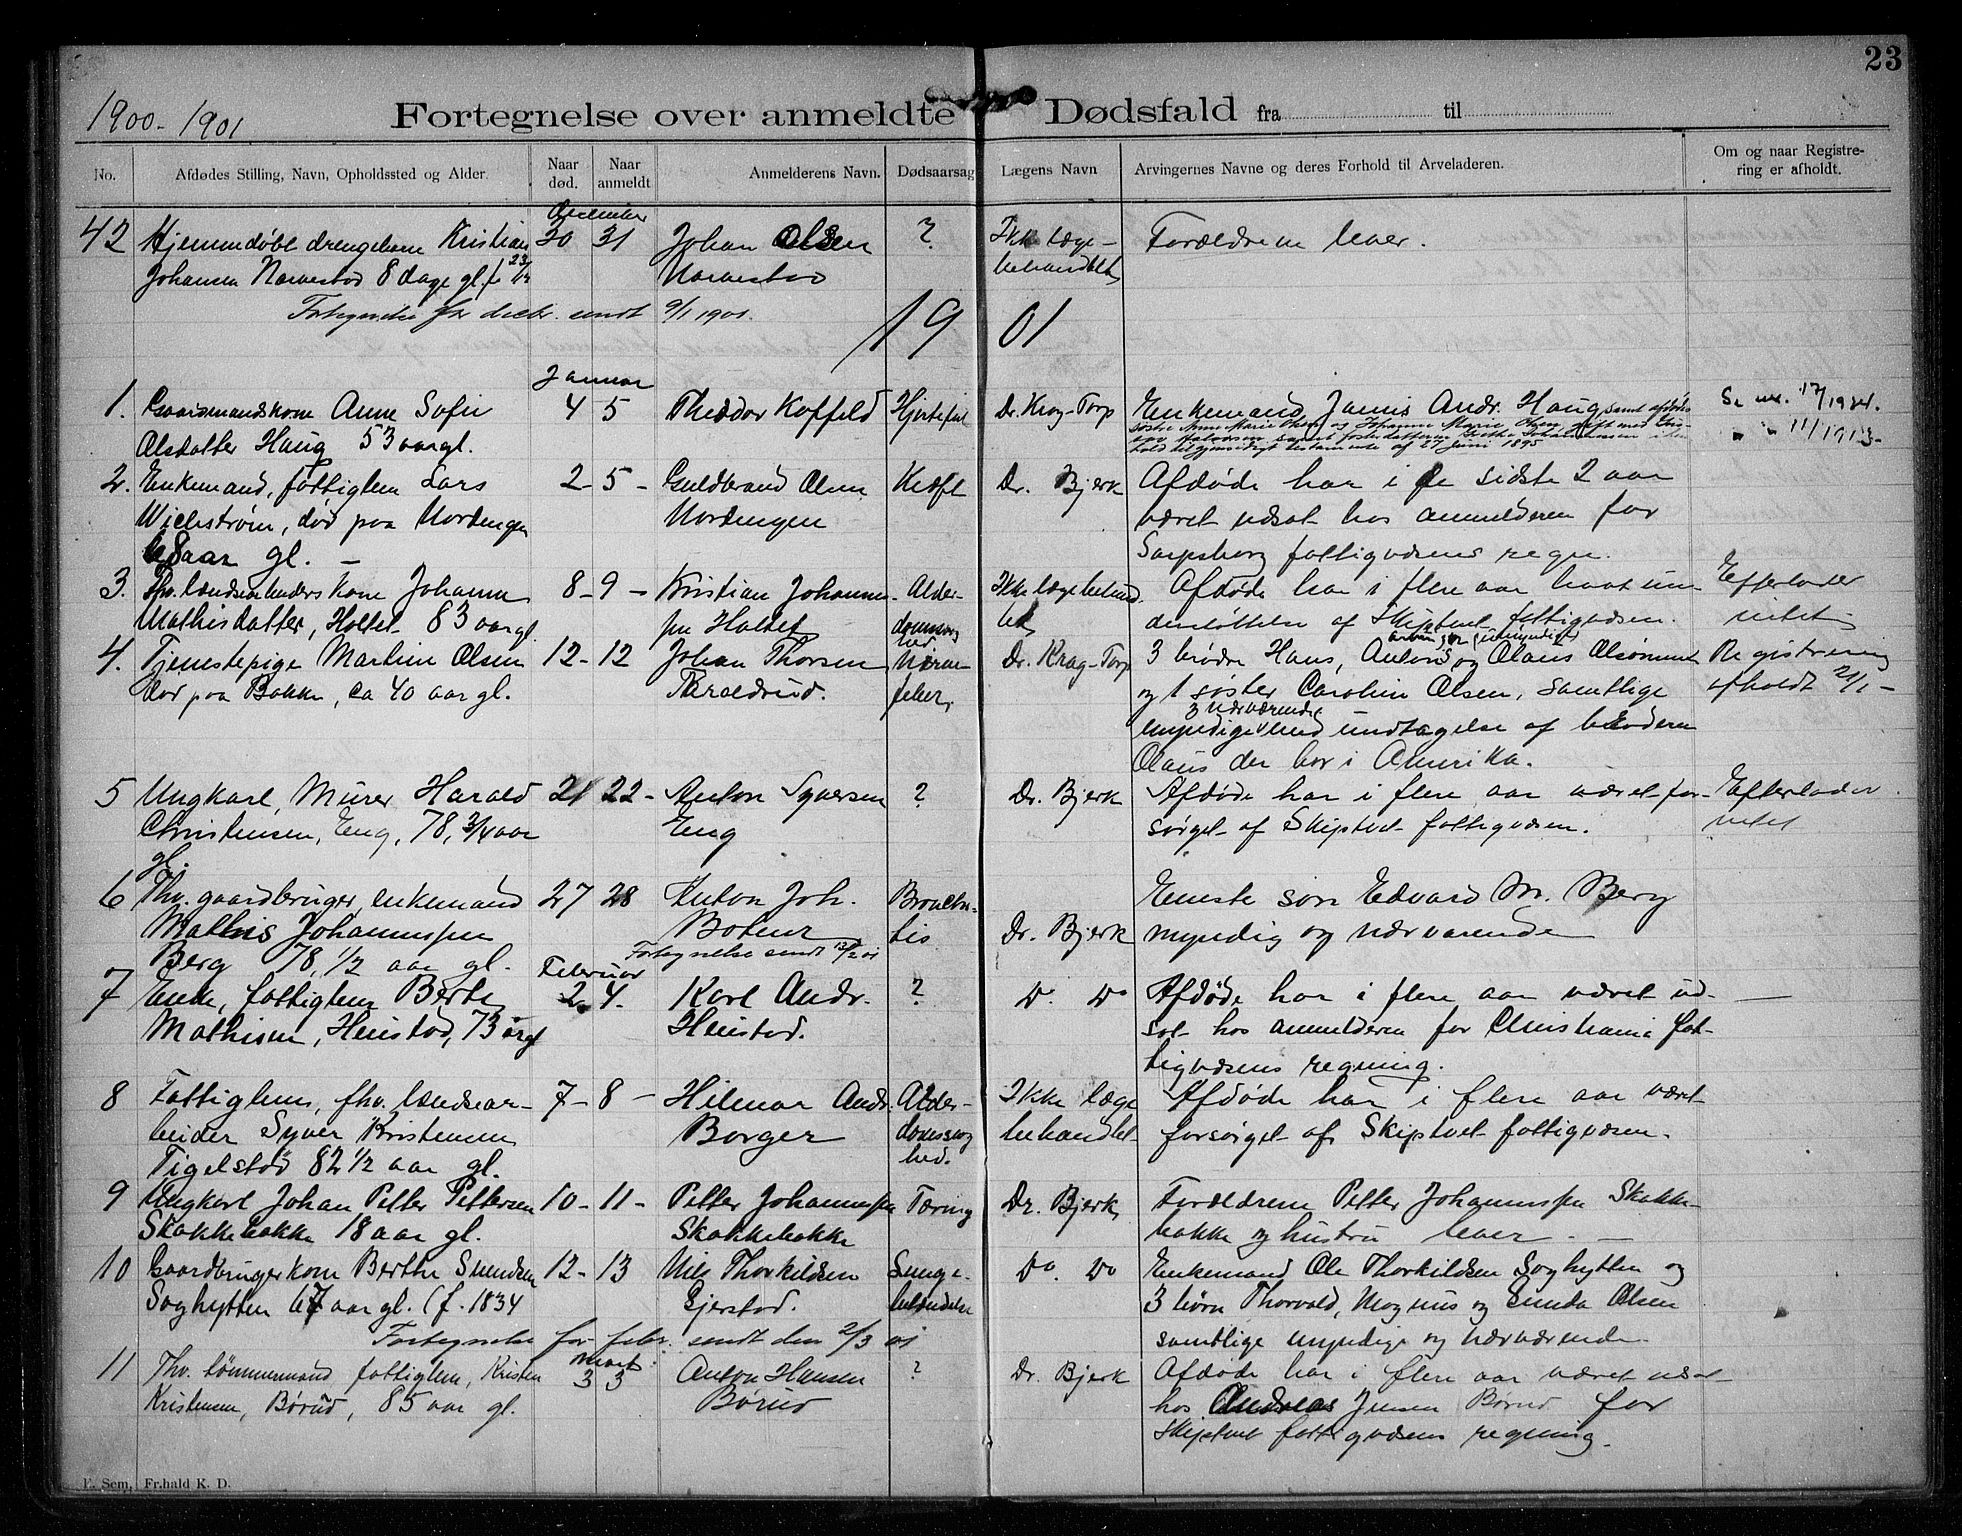 23
1900-1901
Fortegnelse over anmeldte Dødsfald fra til
No.
Afdødes Stilling, Navn, Opholdssted og Alder.
Naar død.
Naar anmeldt
Anmelderens Navn.
Dødsaarsag
Lægens Navn
Arvingernes Navne og deres Forhold til Arveladeren.
Om og naar Registre-
ring er afholdt.
December
42 Hjemmedøbt drengebarn Kristian 30 31 Johan Olsen ? Ikke læge- Forældrene lever.
Johansen Narvestad 8 dage gl. f. 23/12 Narvestad behandlet
Fortegnelse for decbr. sendt 9/1 1901.
1901
Januar
1. Gaardmandskone Anne Sofie 4 5 Theodor Koffeld Hjertefeil Dr. Krag-Torp Enkemand Jamis Andr. Haug, samt afdødes Se nr. 17/1904.
søstre Anne Marie Olsen og Johanne Marie Olsen, gift med
Olsdatter Haug 53 aar gl. samt fosterdatteren " " 11/1913
hold til gjensidigt testamente af 27 Juni 1895
2. Enkemand, fattiglem Lars 2 - 5 - Guldbrand Olsen Kræft Dr. Bjerk Afdøde har i de sidste 2 aar
Wichstrøm, død paa Nordengen Nordengen været udsat hos anmelderen for
68 aar gl. - Sarpsborg fattigvæsens regn.
3. Fhv. lændsmænders kone Johanne 8 - 9 - Kristian Johannes- Alder- Ikke lægebehand- Afdøde har i flere aar havt un- Efterlader
Mathisdatter, Holtet 83 aar gl. sen Holtet domssvaghed let derstøttelse af Skiptvet fattigvæsen. intet
4. Tjenestepige Martine Olsen 12 - 12 Johan Thorsen Nerve- Dr. Krag-Torp 3 brødre Hans, Anton og Olaus Olsønner Registrering
død paa Bakke, ca 40 aar gl. Taraldrud. feber, og 1 søster Caroline Olsen, samtlige afholdt 21/1 -
myndige & nærværende med undtagelse af broderen
Olaus der bor i Amerika.
5 Ungkarl, Murer Harald 21 22 - Anton Syversen ? Dr. Bjerk Afdøde har i flere aar været for- Efterlader
Christensen, Eng, 78, 3/4 aar Eng sørget af Skiptvet fattigvæsen. intet
gl.
6 Fhv. gaardbruger, enkemand 27 28 Anton Joh. Bronchi- Eneste søn Edvard M. Berg
Mathis Johannessen Botner tis Dr. Bjerk myndig og nærværende
Berg 78, 1/2 aar gl. Fortegnelse sendt 12/2 01
Februar
7 Enke, fattiglem Berte 2. 4. Karl Andr. ? Do. Do Afdøde har i flere aar været ud- —
Mathisen, Henstad, 73 aar gl Henstad. sat hos anmelderen for Christiania fat-
tigvæsens regning.
8 Fattiglem, fhv. lændsar- 7 - 8 - Hilmar Andr. Alder- Ikke læge Afdøde har i flere aar været
beider Syver Kristensen Borger domssvag behandlet forsørget af Skiptvet fattigvæsen.
Tigelstad 82 1/2 aar gl. hed.
9 Ungkarl Johan Petter Pettersen 10 - 11 - Petter Johannessen Tæring Dr. Bjerk Forældrene Petter Johannessen Skakke-
Skakkebakke 18 aar gl. Skakkebakke bakke og hustru lever. -
10 Gaardbrugerkone Berthe Svendsen 12 - 13 Nils Thorkildsen Lunge- Do. Do Enkemand Ole Thorkildsen Soghytten og
Soghytten 67 aar gl. (f. 1834 Gjerstad. betændelse 3 børn Thorvald, Magnus og Olsen
Fortegnelse for febr. sendt den 2/3 01 samtlige myndige og nærværende
Mart
11 Fhv. tømmermand fattiglem, Kristen 3 3 Anton Hansen ? Dr. Bjerk Afdøde har i flere aar været udsat
Kristensen, Børud, 85 aar gl. Børud hos Andreas Jensen Børud for
Skiptvet fattigvæsens regning.
F. Sem, Fr.hald K. D.